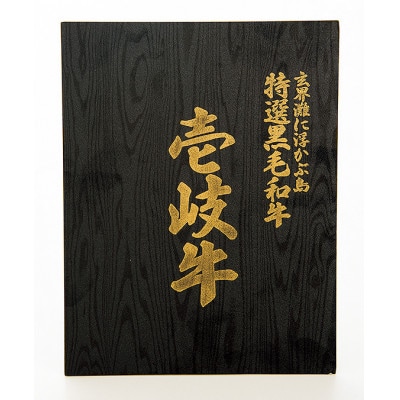 玄界灘に浮かぶ島
特選黒毛和牛
壱岐牛